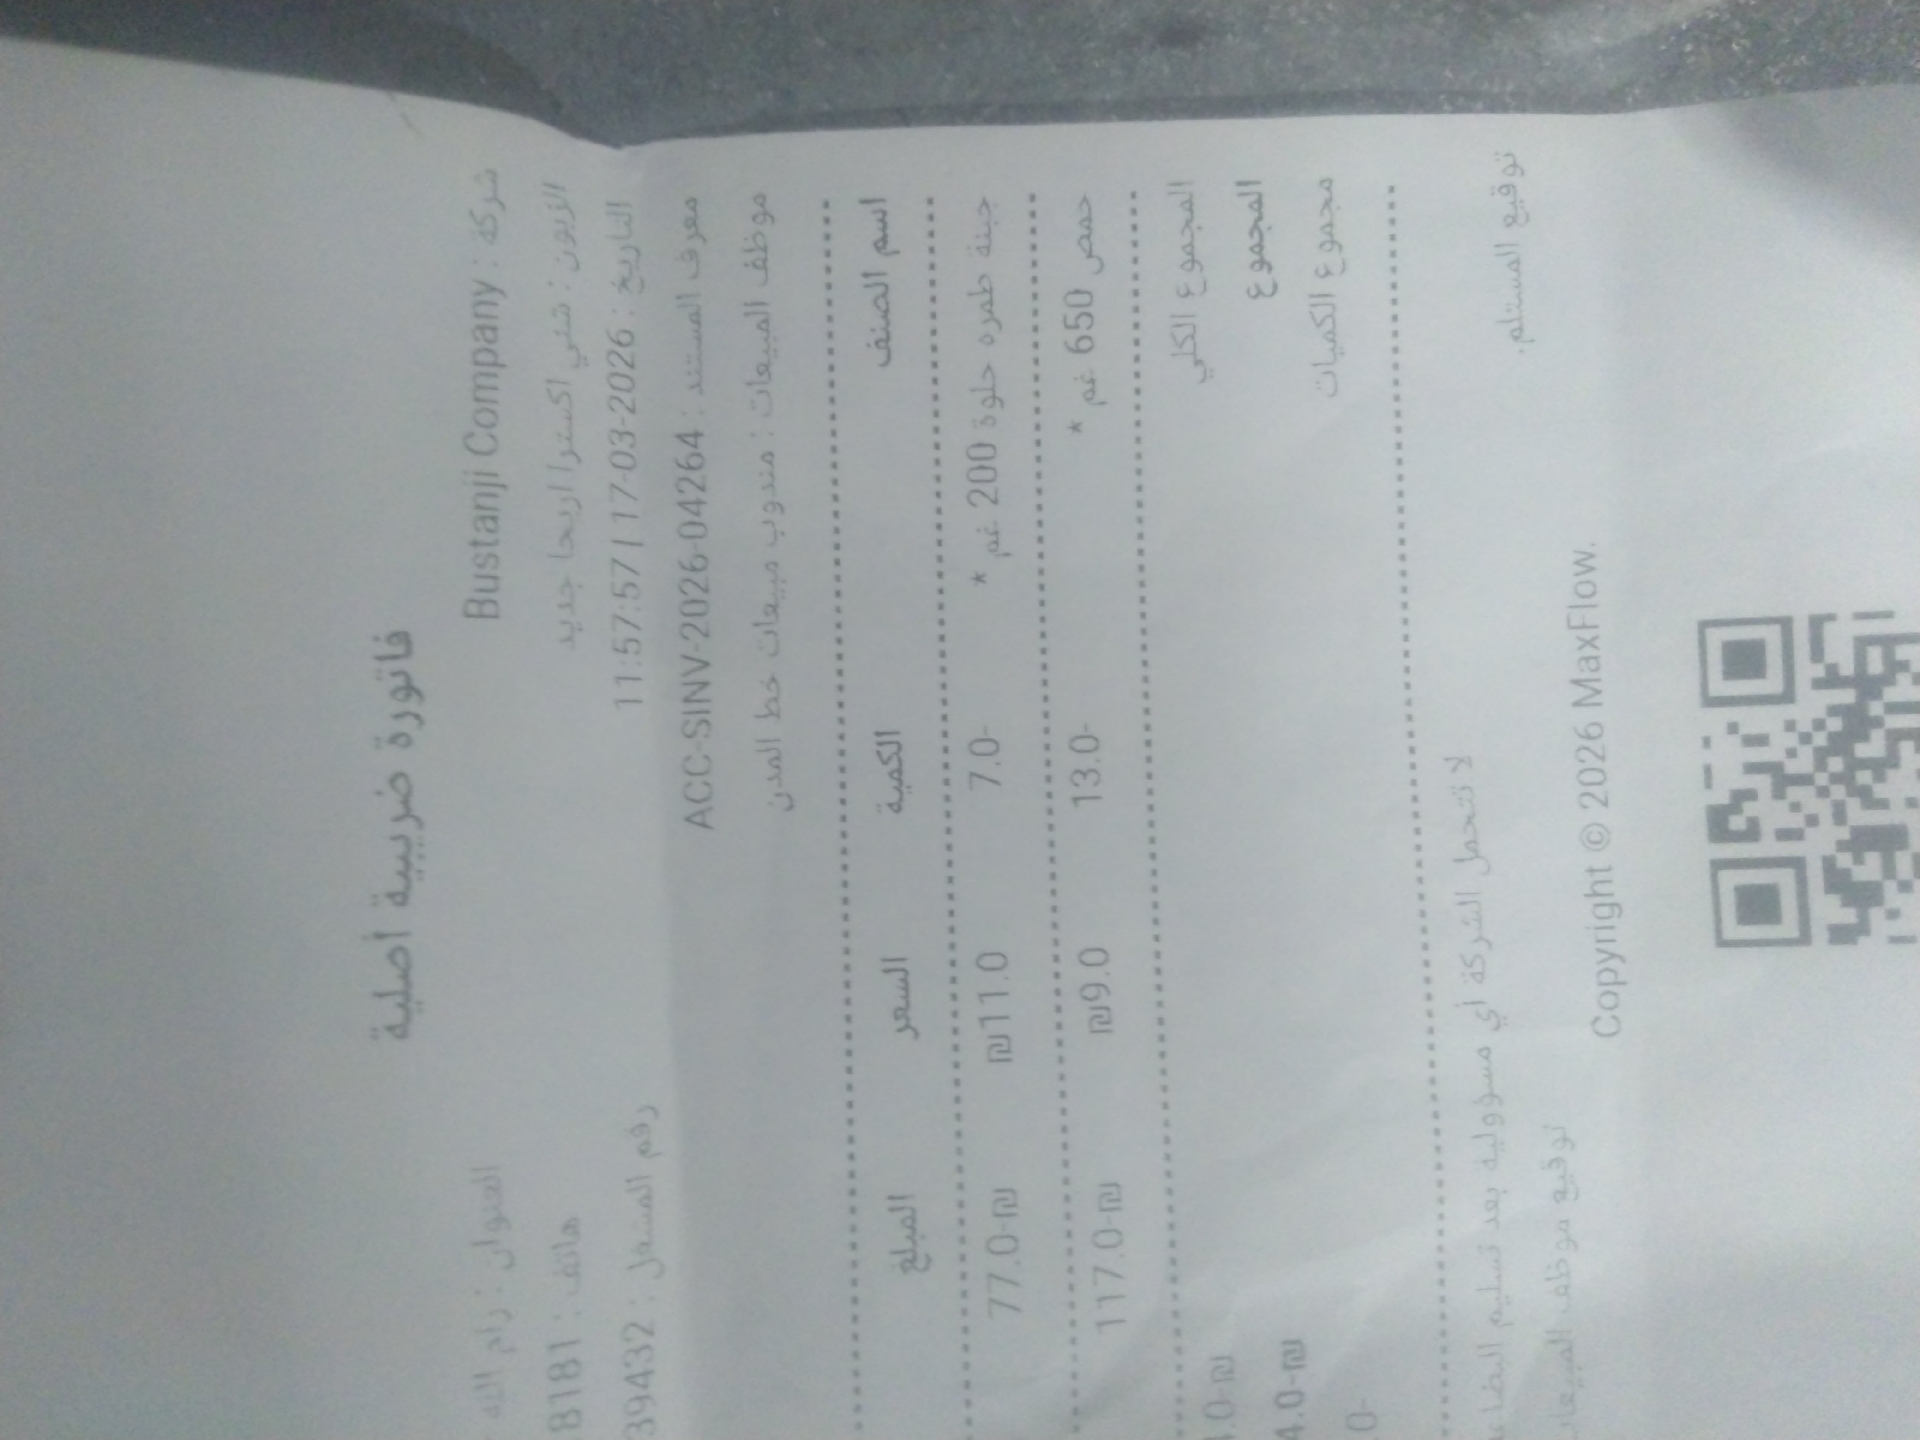 فاتورة ضريبية أصلية
شركة : Bustanji Company العنوان : رام الله
الزبون : شني اكسترا اريحا جديد هاتف : 8181
التاريخ : 2026-03-17 | 11:57:57 رقم المشغل : 39432
معرف المستند : ACC-SINV-2026-04264
موظف المبيعات : مندوب مبيعات خط المدن
اسم الصنف الكمية السعر المبلغ
جبنة طمره حلوة 200 غم * 7.0- ₪11.0 77.0-₪
حمص 650 غم * 13.0- ₪9.0 117.0-₪
المجموع الكلي 4.0-₪
المجموع 4.0-₪
مجموع الكميات 0-
لا تتحمل الشركة أي مسؤولية بعد تسليم
توقيع المستلم. توقيع موظف
Copyright © 2026 MaxFlow.